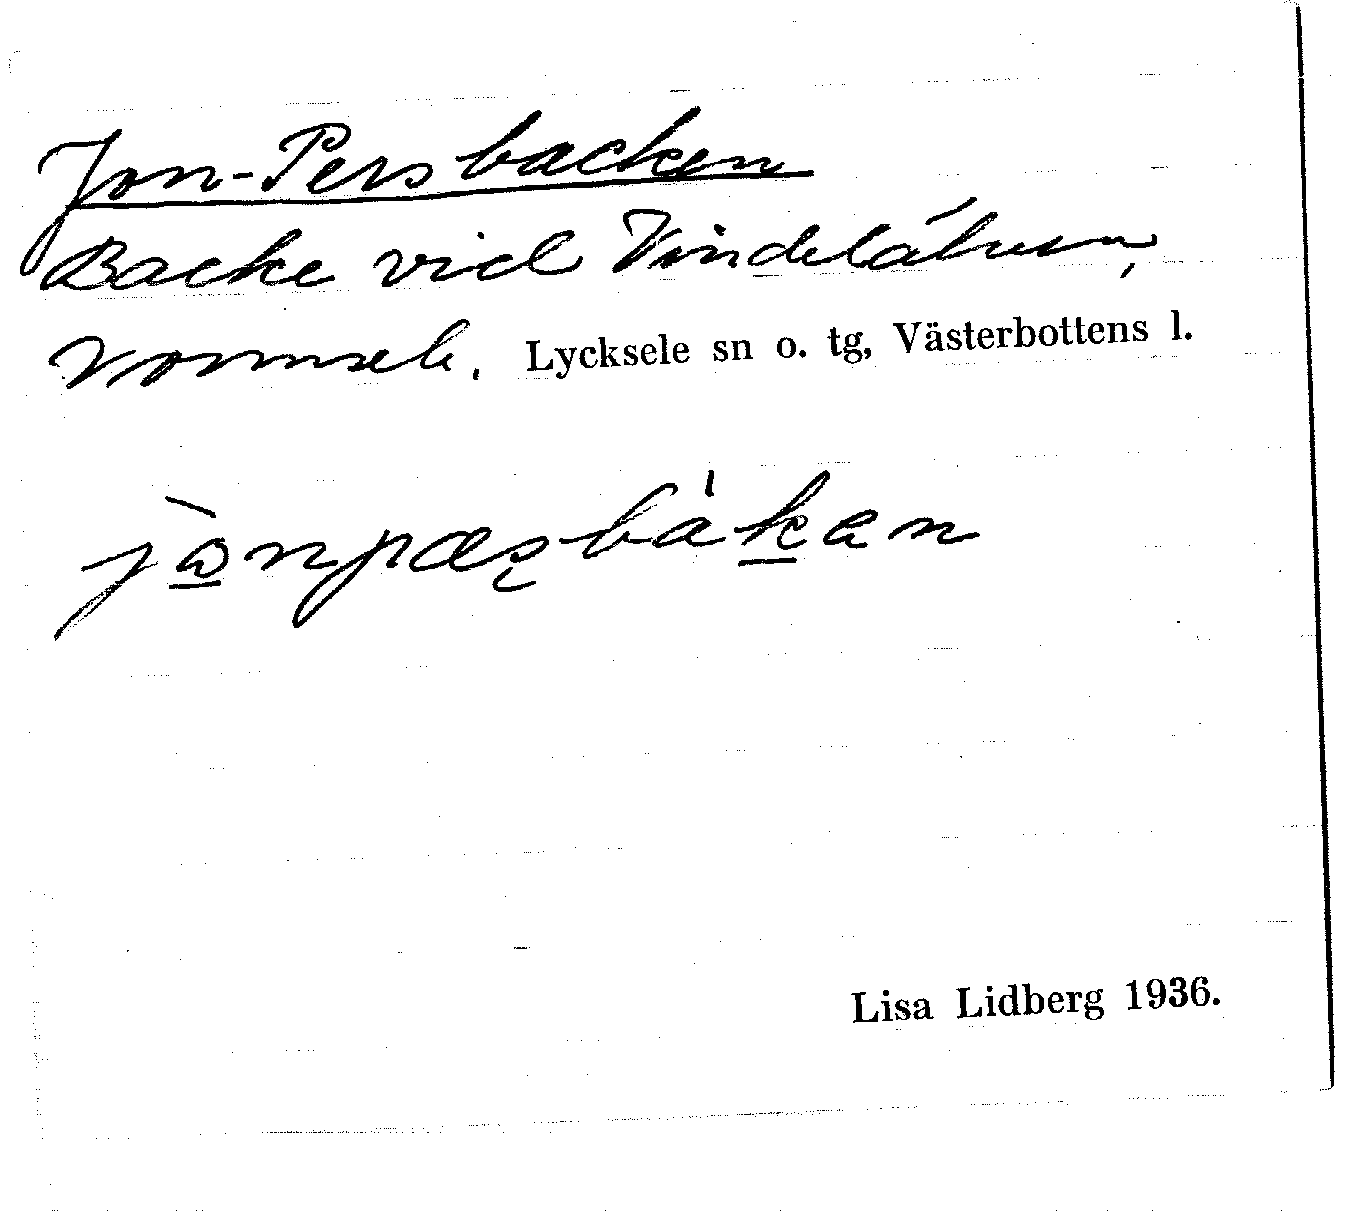 Jon-Persbacken
Backe vid Vindelälven,
Vormsele. Lycksele sn o. tg, Västerbottens l.
Lisa Lidberg 1936.